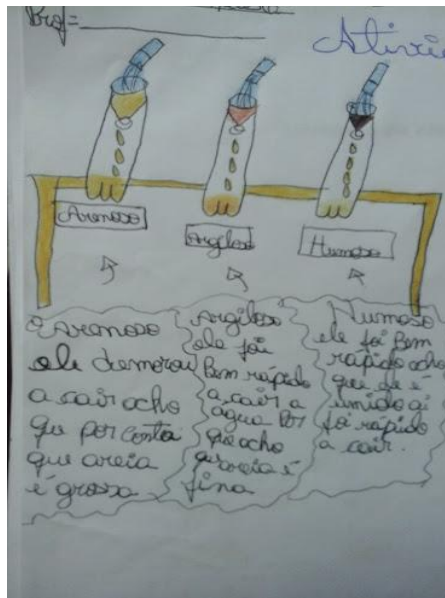 Prof=
Ativi
Arenoso
Argiloso
Humoso
O Arenoso
ele demorou
a cair acho
que por conta
que areia
é grossa
Argiloso
ele foi
bem rápido
a cair a
água por
que acho
que areia é
fina
Humoso
ele foi bem
rápido acho
que ele é
umido ai
foi rápido
a cair.